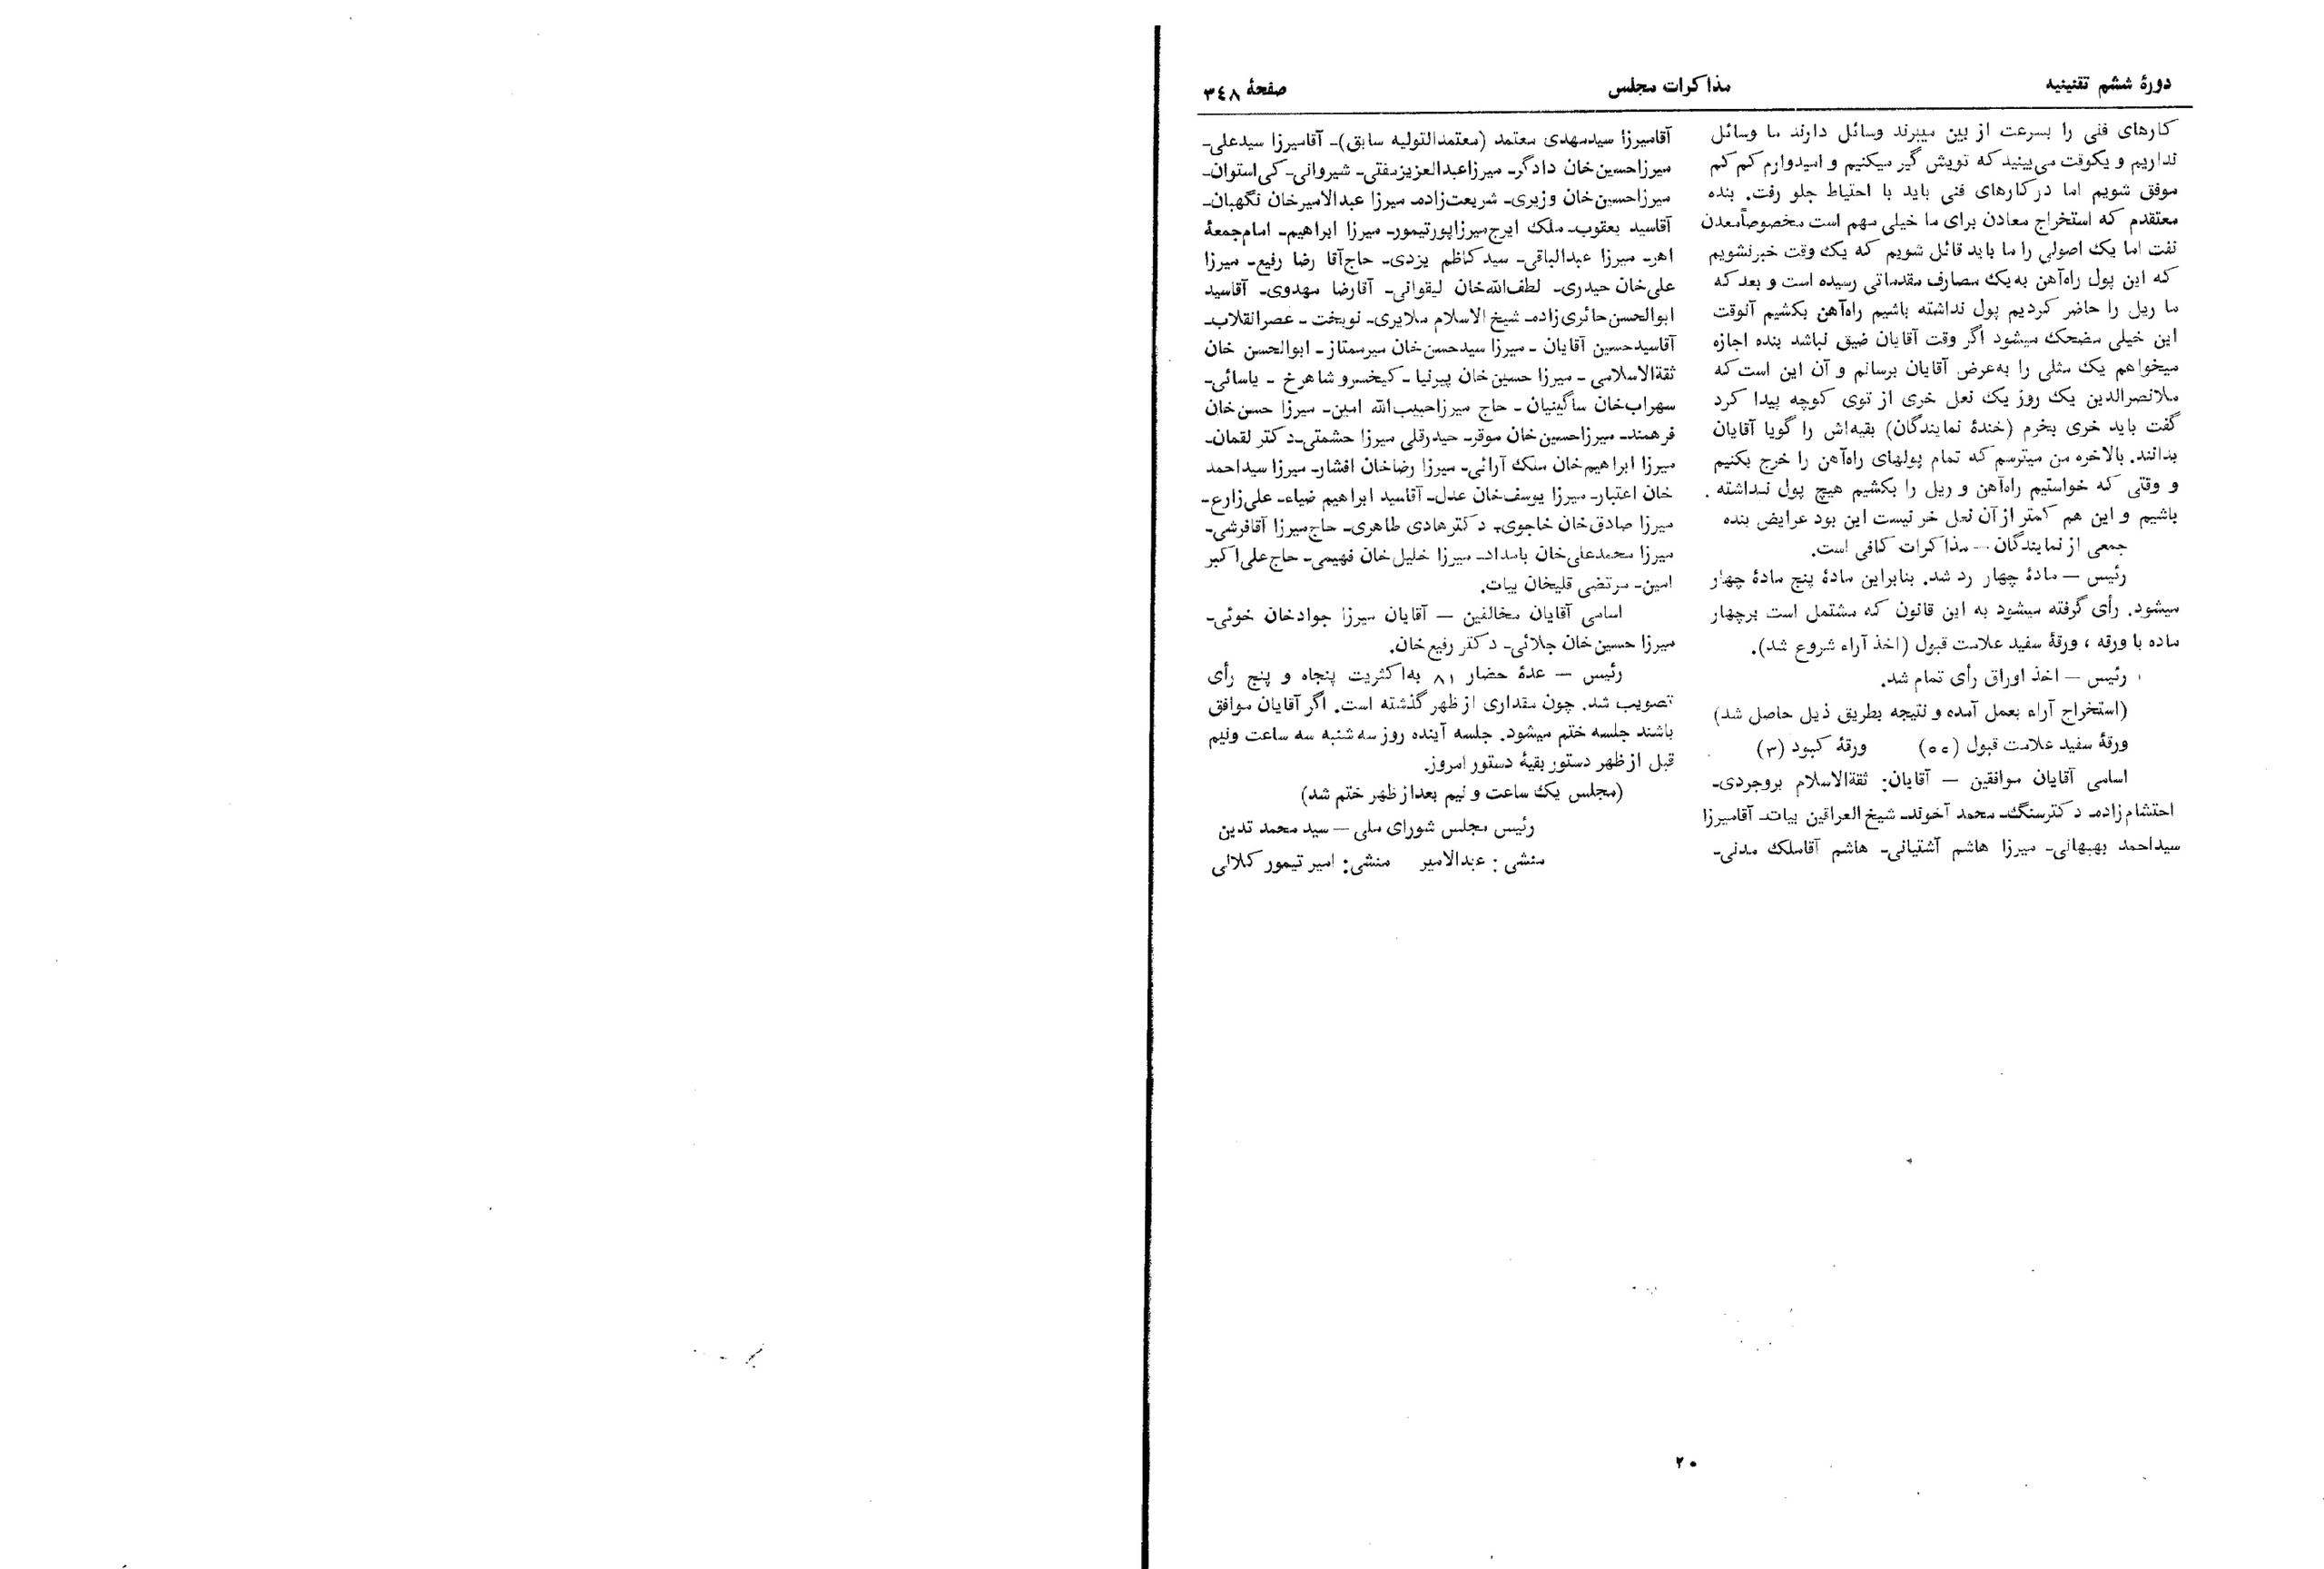 دورهٔ ششم تقنینیه
مذاکرات مجلس
صفحهٔ ۳۴۸
کارهای فنی را بسرعت از بین میبرند وسائل دارند ما وسائل
نداریم و یکوقت می‌بینید که تویش گیر میکنیم و امیدوارم کم کم
موفق شویم اما در کارهای فنی باید با احتیاط جلو رفت. بنده
معتقدم که استخراج معادن برای ما خیلی مهم است مخصوصاً معدن
نفت اما یک اصولی را ما باید قائل شویم که یک وقت خبر نشویم
که این پول راه‌آهن به‌یک مصارف مقدماتی رسیده است و بعد که
ما ریل را حاضر کردیم پول نداشته باشیم راه‌آهن بکشیم آنوقت
این خیلی مضحک میشود اگر وقت آقایان ضیق نباشد بنده اجازه
میخواهم یک مثلی را به‌عرض آقایان برسانم و آن این است که
ملانصرالدین یک روز یک نعل خری از توی کوچه پیدا کرد
گفت باید خری بخرم (خندهٔ نمایندگان) بقیه‌اش را گویا آقایان
بدانند. بالاخره من میترسم که تمام پولهای راه‌آهن را خرج بکنیم
و وقتی که خواستیم راه‌آهن و ریل را بکشیم هیچ پول نداشته .
باشیم و این هم کمتر از آن نعل خر نیست این بود عرایض بنده
جمعی از نمایندگان — مذاکرات کافی است.
رئیس — مادهٔ چهار رد شد. بنابراین مادهٔ پنج مادهٔ چهار
میشود. رأی گرفته میشود به این قانون که مشتمل است برچهار
ماده با ورقه ، ورقهٔ سفید علامت قبول (اخذ آراء شروع شد).
رئیس — اخذ اوراق رأی تمام شد.
(استخراج آراء بعمل آمده و نتیجه بطریق ذیل حاصل شد)
ورقهٔ سفید علامت قبول (۵۵) ورقهٔ کبود (۳)
اسامی آقایان موافقین — آقایان: ثقةالاسلام بروجردی-
احتشام‌زاده- دکترسنگ- محمد آخوند- شیخ العراقین بیات- آقامیرزا
سیداحمد بهبهانی- میرزا هاشم آشتیانی- هاشم آقاملک مدنی-
آقامیرزا سیدمهدی معتمد (معتمدالتولیه سابق)- آقامیرزا سیدعلی-
میرزاحسین‌خان دادگر- میرزاعبدالعزیزمفتی- شیروانی- کی‌استوان-
میرزاحسین‌خان وزیری- شریعت‌زاده- میرزا عبدالامیرخان نگهبان-
آقاسید یعقوب- ملک ایرج‌میرزاپورتیمور- میرزا ابراهیم- امام‌جمعهٔ
اهر- میرزا عبدالباقی- سیدکاظم یزدی- حاج‌آقا رضا رفیع- میرزا
علی‌خان حیدری- لطف‌الله‌خان لیقوانی- آقارضا مهدوی- آقاسید
ابوالحسن حائری‌زاده- شیخ الاسلام ملایری- نوبخت - عصرانقلاب-
آقاسیدحسین آقایان - میرزا سیدحسن‌خان میرممتاز- ابوالحسن خان
ثقةالاسلامی - میرزا حسین‌خان پیرنیا -کیخسرو شاهرخ - یاسائی-
سهراب‌خان ساگینیان - حاج میرزاحبیب‌الله امین- میرزا حسن‌خان
فرهمند- میرزاحسین‌خان موقر- حیدرقلی میرزا حشمتی-دکتر لقمان-
میرزا ابراهیم‌خان ملک آرائی- میرزا رضاخان افشار- میرزا سیداحمد
خان اعتبار- میرزا یوسف‌خان عدل- آقاسید ابراهیم ضیاء- علی‌زارع-
میرزا صادق‌خان خاجوی- دکترهادی طاهری- حاج‌میرزا آقافرشی-
میرزا محمدعلی‌خان بامداد- میرزا خلیل‌خان فهیمی- حاج‌علی‌اکبر
امین- مرتضی قلیخان بیات.
اسامی آقایان مخالفین — آقایان میرزا جوادخان خوئی-
میرزا حسین‌خان جلائی- دکتر رفیع‌خان.
رئیس — عدهٔ حضار ۸۱ به‌اکثریت پنجاه و پنج رأی
تصویب شد. چون مقداری از ظهر گذشته است. اگر آقایان موافق
باشند جلسه ختم میشود. جلسه آینده روز سه شنبه سه ساعت ونیم
قبل از ظهر دستور بقیهٔ دستور امروز.
(مجلس یک ساعت و نیم بعداز ظهر ختم شد)
رئیس مجلس شورای ملی — سید محمد تدین
منشی : عبدالامیر منشی: امیر تیمور کلالی
۲۰